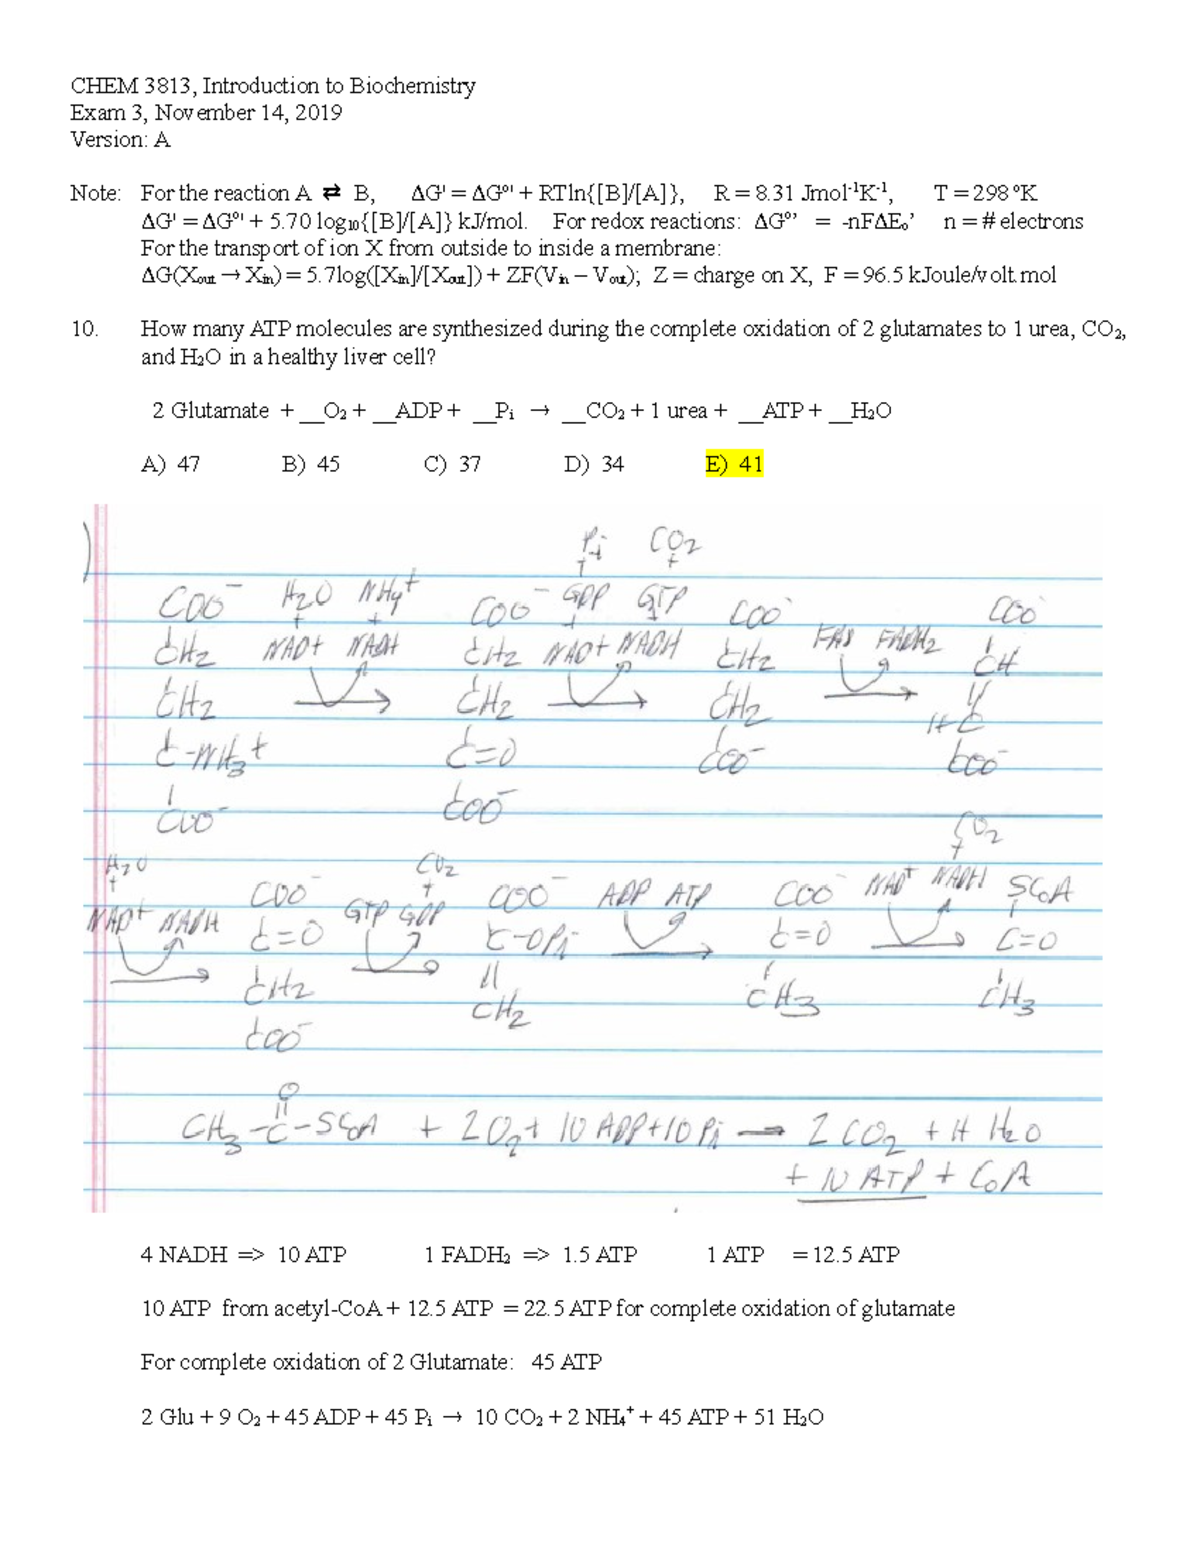 CHEM 3813, Introduction to Biochemistry
Exam 3, November 14, 2019
Version: A
Note: For the reaction A ⇄ B, ΔG' = ΔG°' + RTln{[B]/[A]}, R = 8.31 Jmol⁻¹K⁻¹, T = 298 °K
ΔG' = ΔG°' + 5.70 log₁₀{[B]/[A]} kJ/mol. For redox reactions: ΔG°’ = -nFΔE₀’ n = # electrons
For the transport of ion X from outside to inside a membrane:
ΔG(Xout → Xin) = 5.7log([Xin]/[Xout]) + ZF(Vin – Vout); Z = charge on X, F = 96.5 kJoule/volt.mol
10. How many ATP molecules are synthesized during the complete oxidation of 2 glutamates to 1 urea, CO₂,
and H₂O in a healthy liver cell?
2 Glutamate + __O₂ + __ADP + __Pi → __CO₂ + 1 urea + __ATP + __H₂O
A) 47 B) 45 C) 37 D) 34 E) 41
)
Pi CO₂
+ +
COO⁻ H₂O NH₄⁺ COO⁻ GDP GTP COO⁻ COO⁻
+ + + +
CH₂ NAD⁺ NADH CH₂ NAD⁺ NADH CH₂ FAD FADH₂ CH
CH₂ → CH₂ → CH₂ → HC
C-NH₃⁺ C=O COO⁻ COO⁻
COO⁻ COO⁻
CO₂
H₂O CO₂ +
+ +
COO⁻ GTP GDP COO⁻ ADP ATP COO⁻ NAD⁺ NADH SCoA
NAD⁺ NADH C=O C-OPi C=O C=O
→ CH₂ → CH₂ → CH₃ → CH₃
COO⁻
O
CH₃-C-SCoA + 2O₂ + 10 ADP + 10 Pi → 2 CO₂ + H H₂O
+ 10 ATP + CoA
4 NADH => 10 ATP 1 FADH₂ => 1.5 ATP 1 ATP = 12.5 ATP
10 ATP from acetyl-CoA + 12.5 ATP = 22.5 ATP for complete oxidation of glutamate
For complete oxidation of 2 Glutamate: 45 ATP
2 Glu + 9 O₂ + 45 ADP + 45 Pi → 10 CO₂ + 2 NH₄⁺ + 45 ATP + 51 H₂O